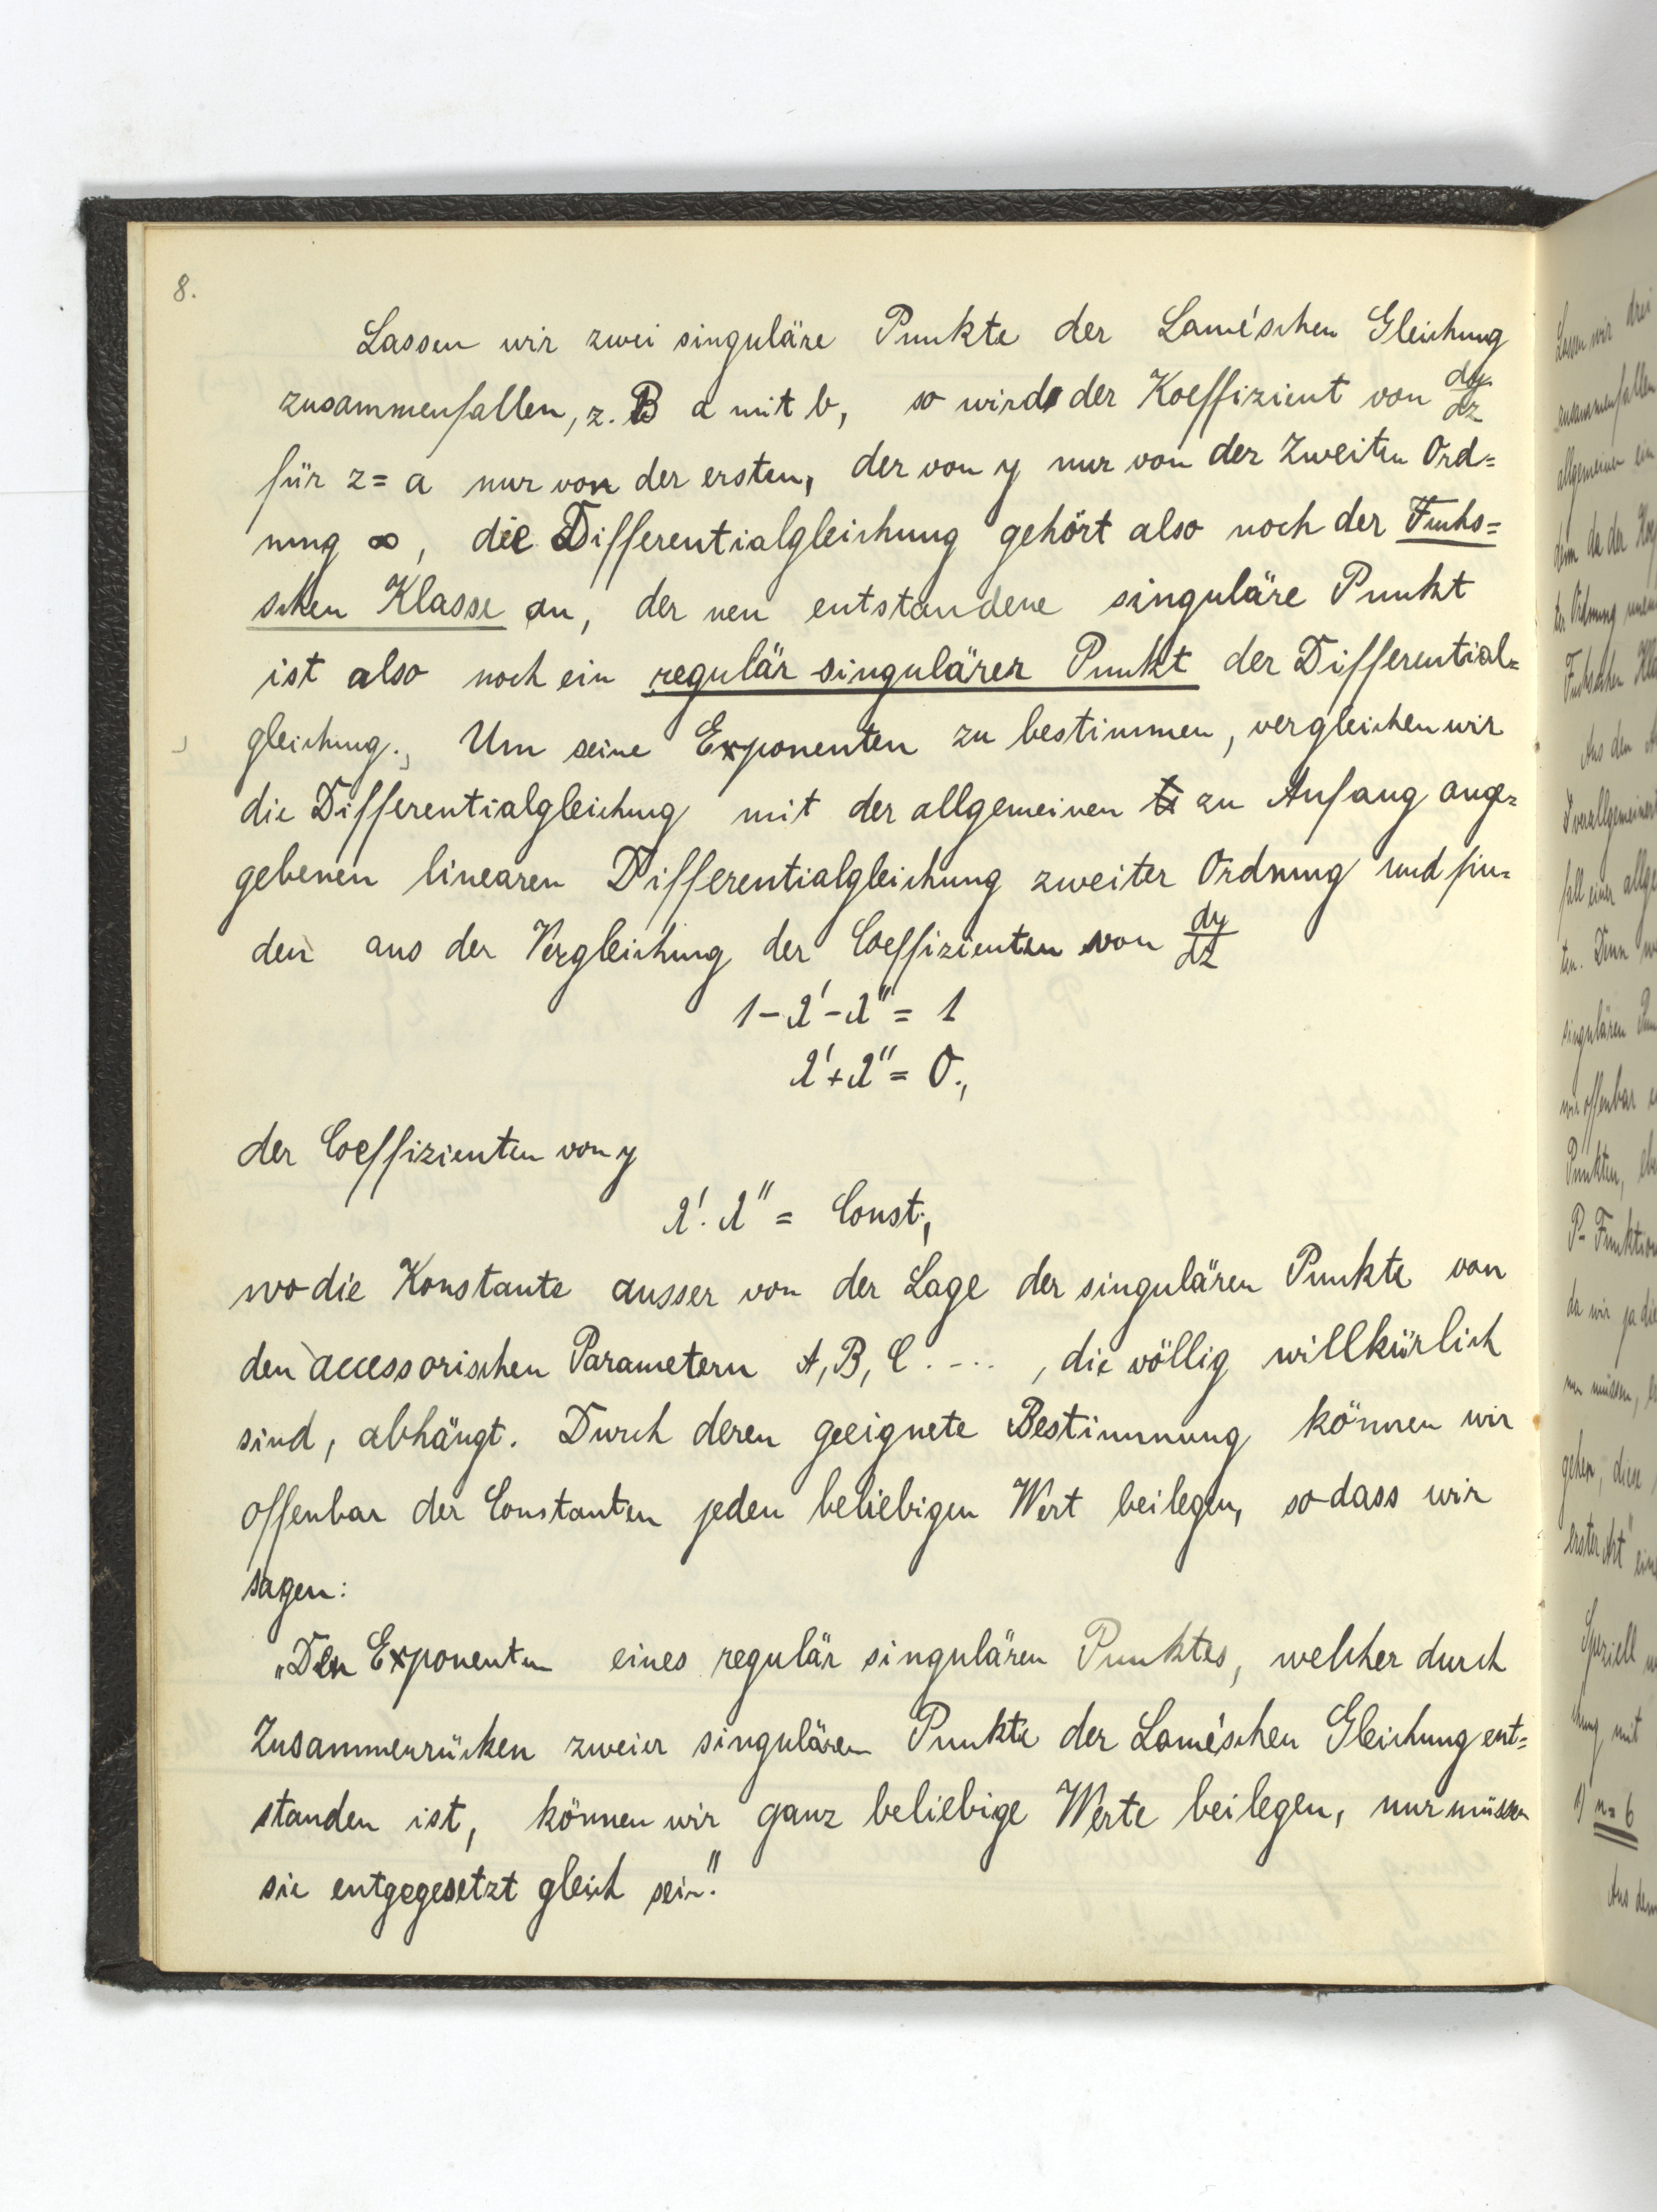 8.
Lassen wir zwei singuläre Punkte der Lamé'schen Gleichung
zusammenfallen, z. B a mit b, so wird der Koeffizient von dy/dz
für z = a nur von der ersten, der von y nur von der zweiten Ord=
nung ∞, die Differentialgleichung gehört also noch der Fuchs=
schen Klasse an, der neu entstandene singuläre Punkt
ist also noch ein regulär singulärer Punkt der Differential=
gleichung. Um seine Exponenten zu bestimmen, vergleichen wir
die Differentialgleichung mit der allgemeinen zu Anfang ange=
gebenen linearen Differentialgleichung zweiter Ordnung und fin=
den aus der Vergleichung der Coeffizienten von dy/dz
1 - λ' - λ'' = 1
λ' + λ'' = 0.,
der Coeffizienten von y
λ'. λ'' = Const.,
wo die Konstante ausser von der Lage der singulären Punkte von
den accessorischen Parametern A, B, C ...., die völlig willkürlich
sind, abhängt. Durch deren geeignete Bestimmung können wir
offenbar der Constanten jeden beliebigen Wert beilegen, so dass wir
sagen:
„Den Exponenten eines regulär singulären Punktes, welcher durch
Zusammenrücken zweier singulären Punkte der Lamé'schen Gleichung ent=
standen ist, können wir ganz beliebige Werte beilegen, nur müssen
sie entgegesetzt gleich sein."
Lassen wir drei
zusammenfallen
allgemeinen ein
denn da der
Aus den
fall einer
ten. Denn
singulären
wir offenbar
Punkten,
P- Funktion
da wir ja die
müssen,
gehen, diese
erster Art"
Speziell
mit
1) n = 6
Aus dem